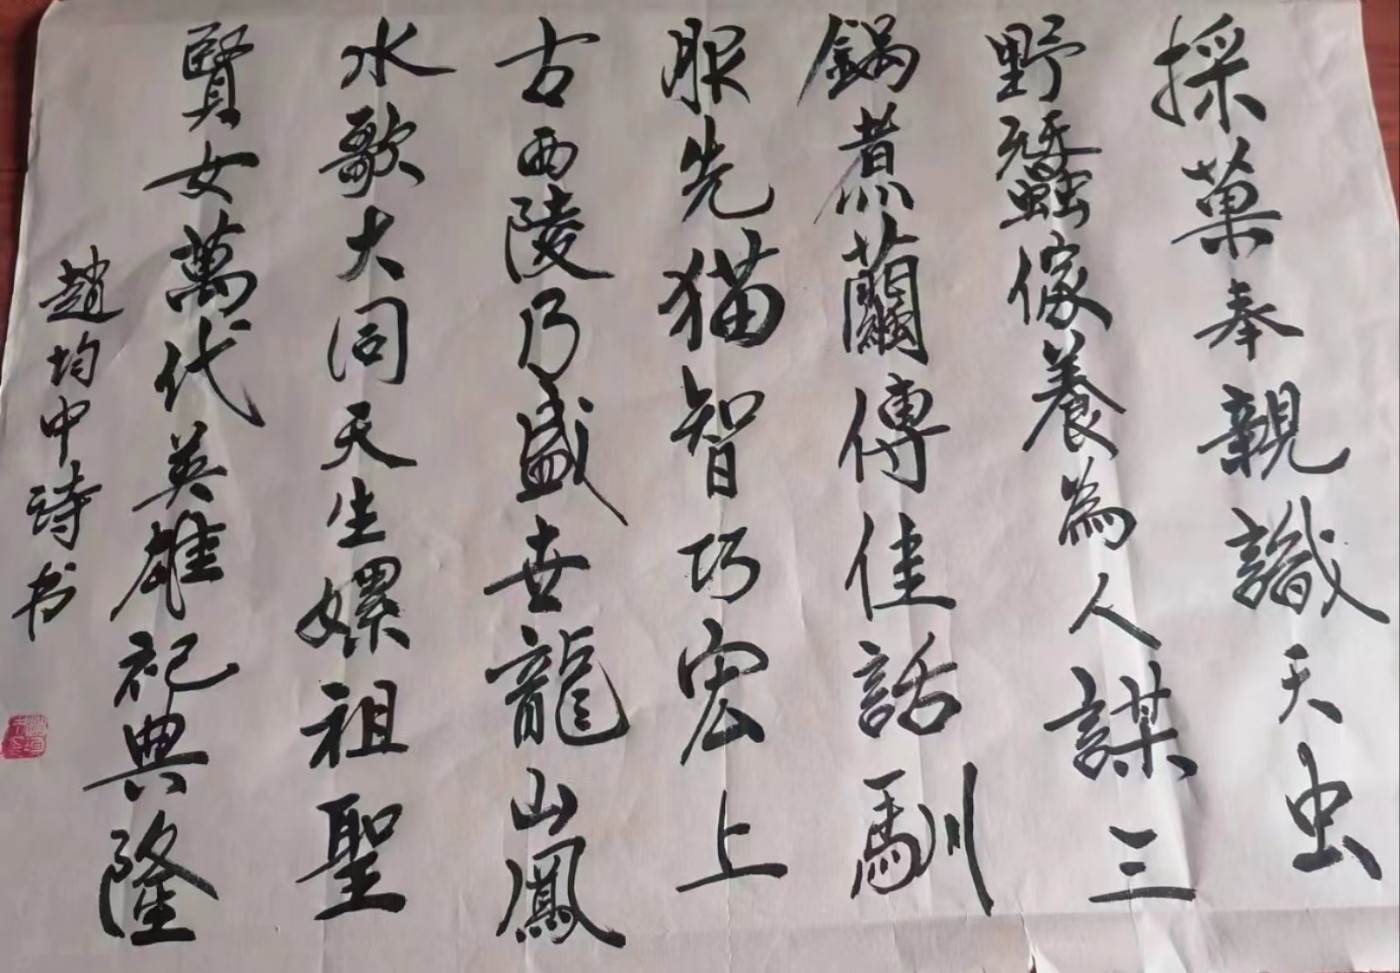 採菓奉親識天虫
野蠶傢養為人謀三
鍋煮繭傳佳話馴
服先猫智巧宏上
古西陵乃盛世龍山鳳
水歌大同天生嫘祖聖
賢女萬代英雄祀典隆
趙均中诗书